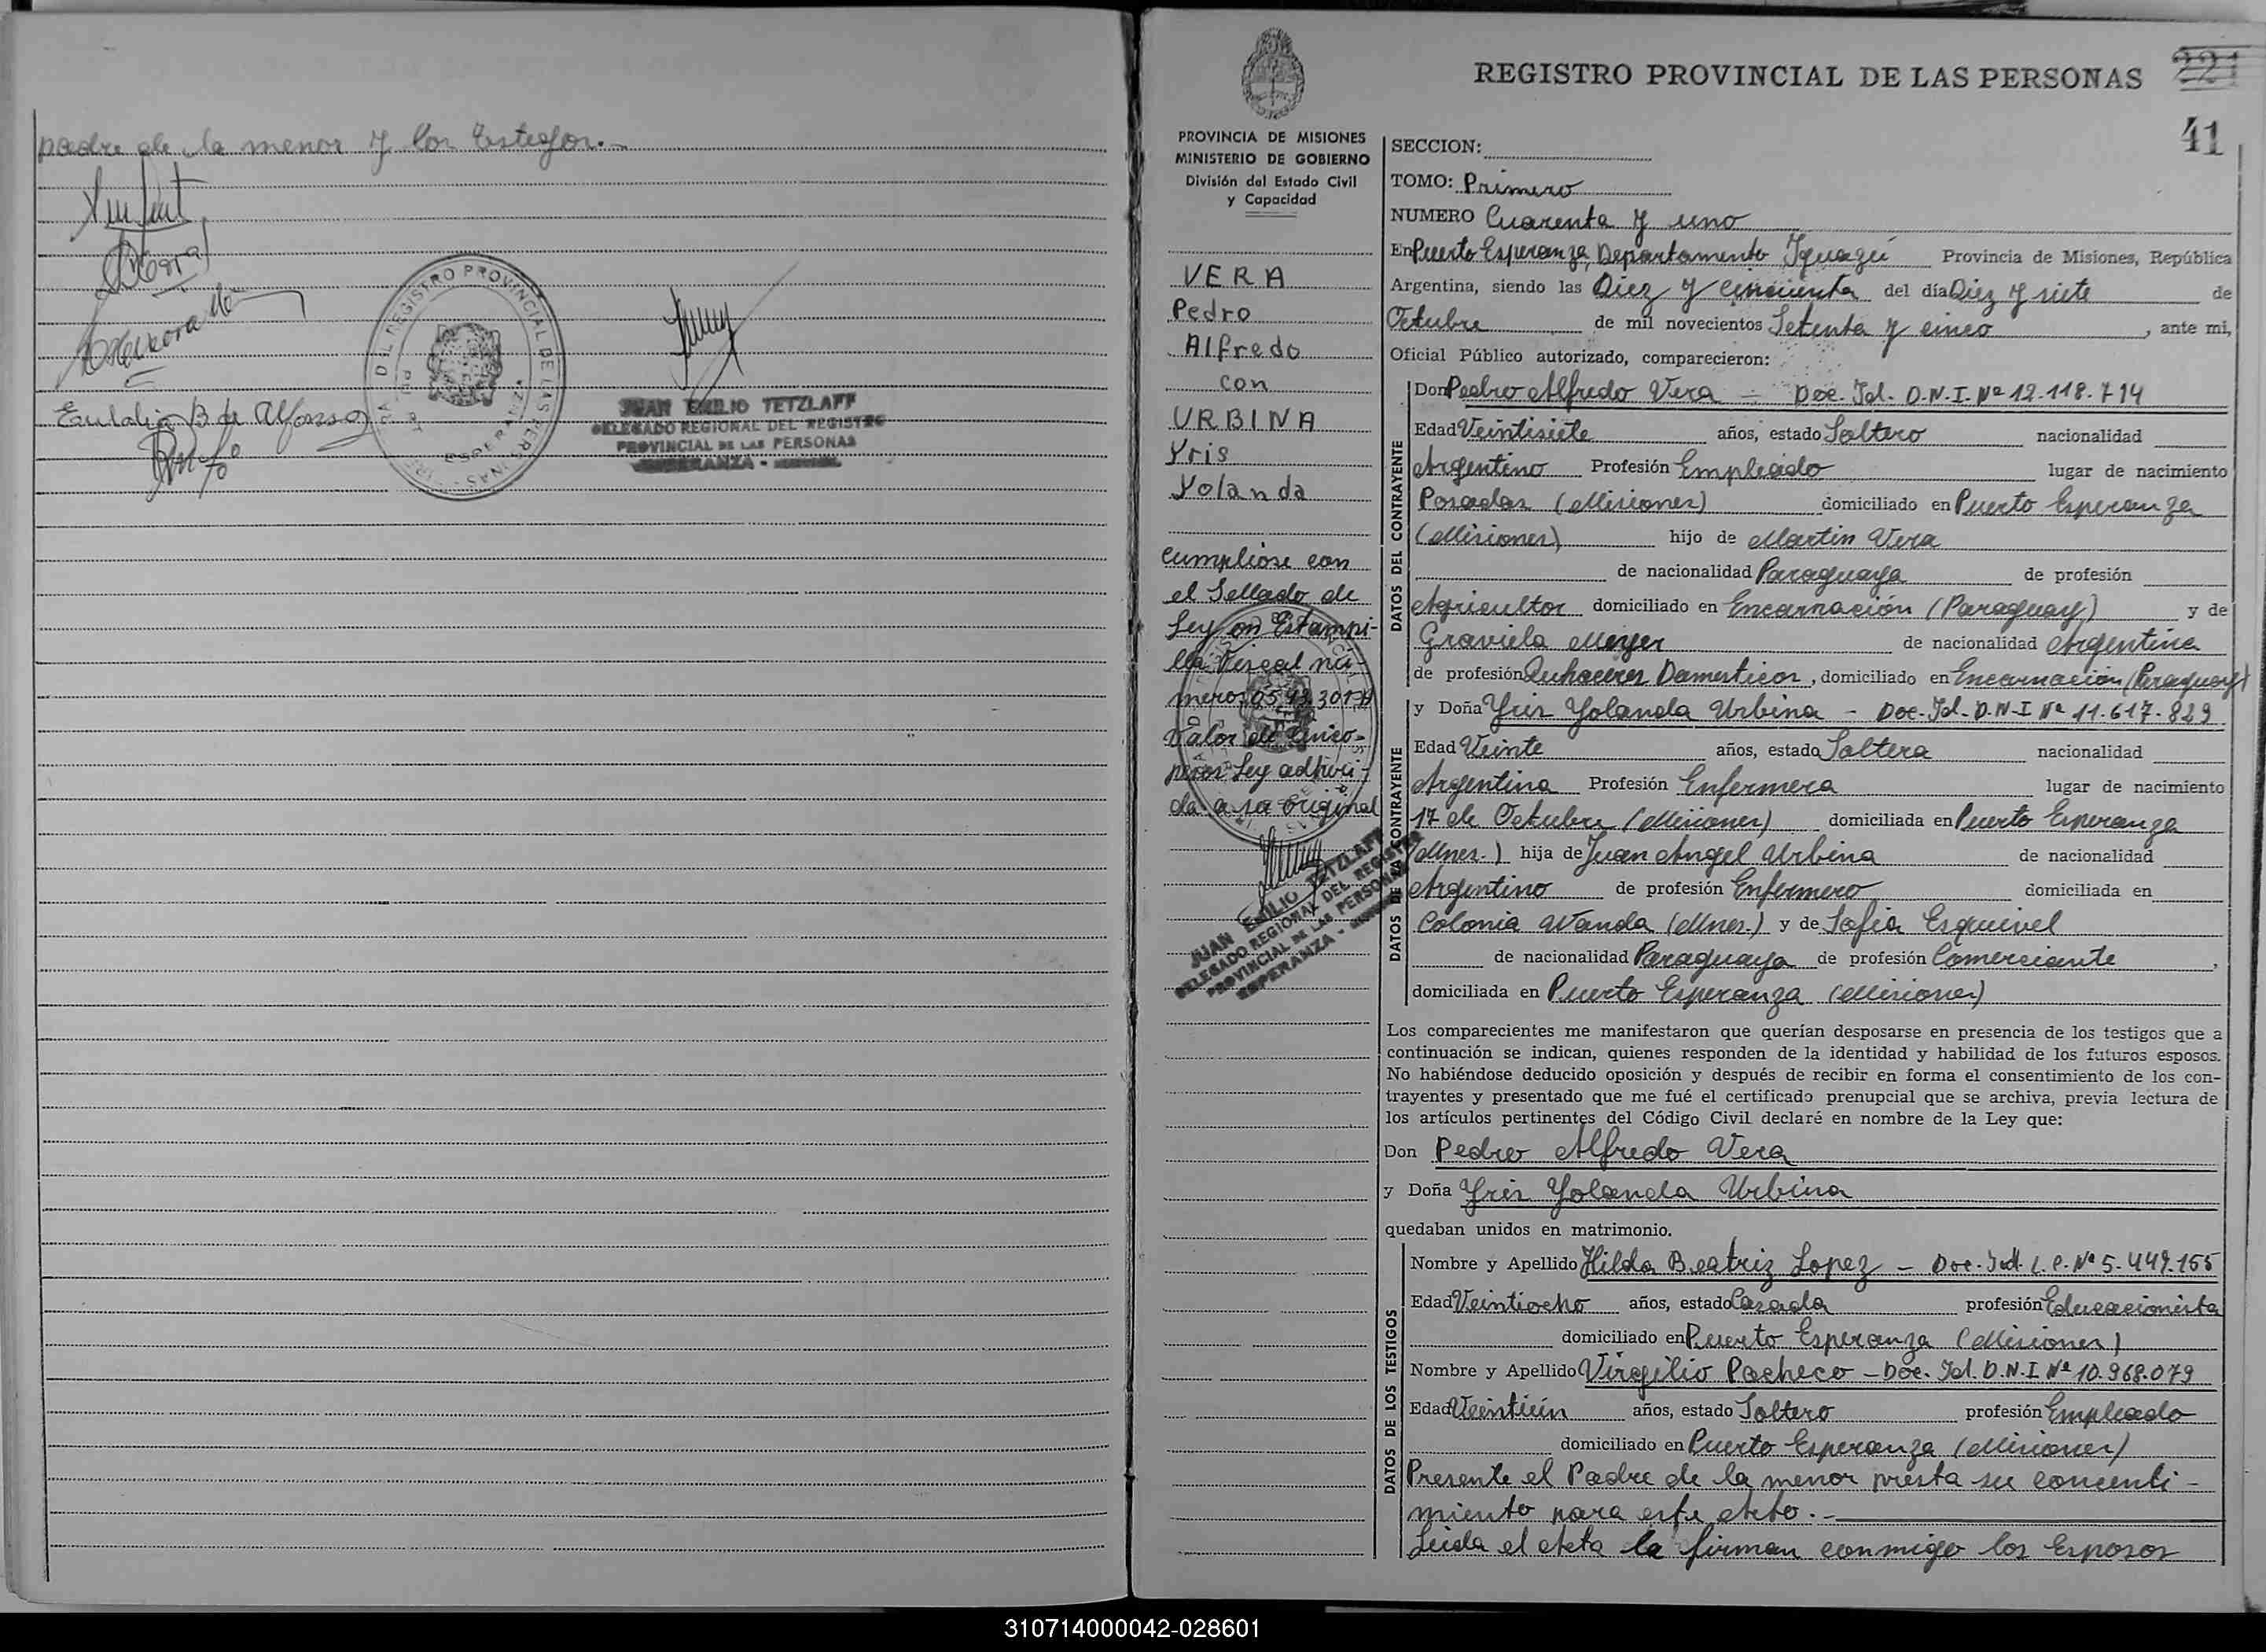 padre de la menor y los testigos.-
Eulalia B de Alfonso
REGISTRO PROVINCIAL DE LAS PERSONAS
JUAN EMILIO TETZLAFF
DELEGADO REGIONAL DEL REGISTRO
PROVINCIAL DE LAS PERSONAS
ESPERANZA -
REGISTRO PROVINCIAL DE LAS PERSONAS
221
41
PROVINCIA DE MISIONES
MINISTERIO DE GOBIERNO
División del Estado Civil
y Capacidad
VERA
Pedro
Alfredo
con
URBINA
Yris
Yolanda
Cumplióse con
el Sellado de
Ley en Estampi-
lla Fiscal nú-
mero
Valor de Cinco-
pesos Ley adheri-
da a su original
JUAN EMILIO TETZLAFF
DELEGADO REGIONAL DEL REGISTRO
PROVINCIAL DE LAS PERSONAS
ESPERANZA -
SECCION:
TOMO: Primero
NUMERO Cuarenta y uno
En Puerto Esperanza, Departamento Iguazú Provincia de Misiones, República
Argentina, siendo las Diez y cincuenta del día Diez y siete de
Octubre de mil novecientos Setenta y cinco, ante mi,
Oficial Público autorizado, comparecieron:
DATOS DEL CONTRAYENTE
Don Pedro Alfredo Vera - Doc. Id. D.N.I. Nº 12.118.714
Edad Veintisiete años, estado Soltero nacionalidad
Argentino Profesión Empleado lugar de nacimiento
Posadas (Misiones) domiciliado en Puerto Esperanza
(Misiones) hijo de Martin Vera
de nacionalidad Paraguaya de profesión
Agricultor domiciliado en Encarnación (Paraguay) y de
Graviela Meyer de nacionalidad Argentina
de profesión Quhaceres Domesticos, domiciliado en Encarnación (Paraguay)
DATOS DE LA CONTRAYENTE
y Doña Yris Yolanda Urbina - Doc. Id. D.N.I Nº 11.617.829
Edad Veinte años, estado Soltera nacionalidad
Argentina Profesión Enfermera lugar de nacimiento
17 de Octubre (Misiones) domiciliada en Puerto Esperanza
(Mnes.) hija de Juan Angel Urbina de nacionalidad
Argentino de profesión Enfermero domiciliada en
Colonia Wanda (Mnes.) y de Sofia Esquivel
de nacionalidad Paraguaya de profesión Comerciante,
domiciliada en Puerto Esperanza (Misiones)
Los comparecientes me manifestaron que querían desposarse en presencia de los testigos que a
continuación se indican, quienes responden de la identidad y habilidad de los futuros esposos.
No habiéndose deducido oposición y después de recibir en forma el consentimiento de los con-
trayentes y presentado que me fué el certificado prenupcial que se archiva, previa lectura de
los artículos pertinentes del Código Civil declaré en nombre de la Ley que:
Don Pedro Alfredo Vera
y Doña Yris Yolanda Urbina
quedaban unidos en matrimonio.
DATOS DE LOS TESTIGOS
Nombre y Apellido Hilda Beatriz Lopez - Doc. Id. L.C. Nº 5.449.155
Edad Veintiocho años, estado Casada profesión Educacionista
domiciliado en Puerto Esperanza (Misiones)
Nombre y Apellido Virgilio Pacheco - Doc. Id. D.N.I Nº 10.968.079
Edad Veintiún años, estado Soltero profesión Empleado
domiciliado en Puerto Esperanza (Misiones)
Presente el Padre de la menor presta su concenti-
miento para este Acto.-
Leida el Acta la firman conmigo los Esposos
310714000042-028601